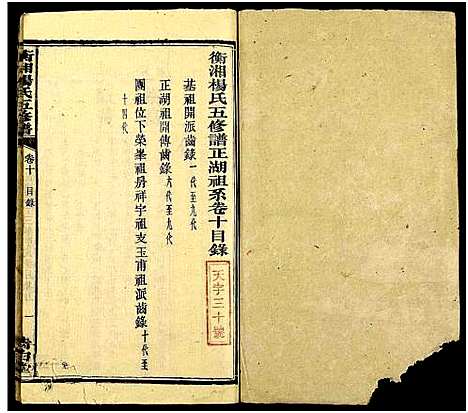 衡湘楊氏五修譜正湖祖系卷十目錄
基祖開派齒錄 一代至九代
正湖祖開傳齒錄 六代至九代
團祖位下榮峯祖房祥宇祖支玉甫祖派齒錄 十代至
十四代
天字三十號
衡湘楊氏五修譜
卷十 目錄
一